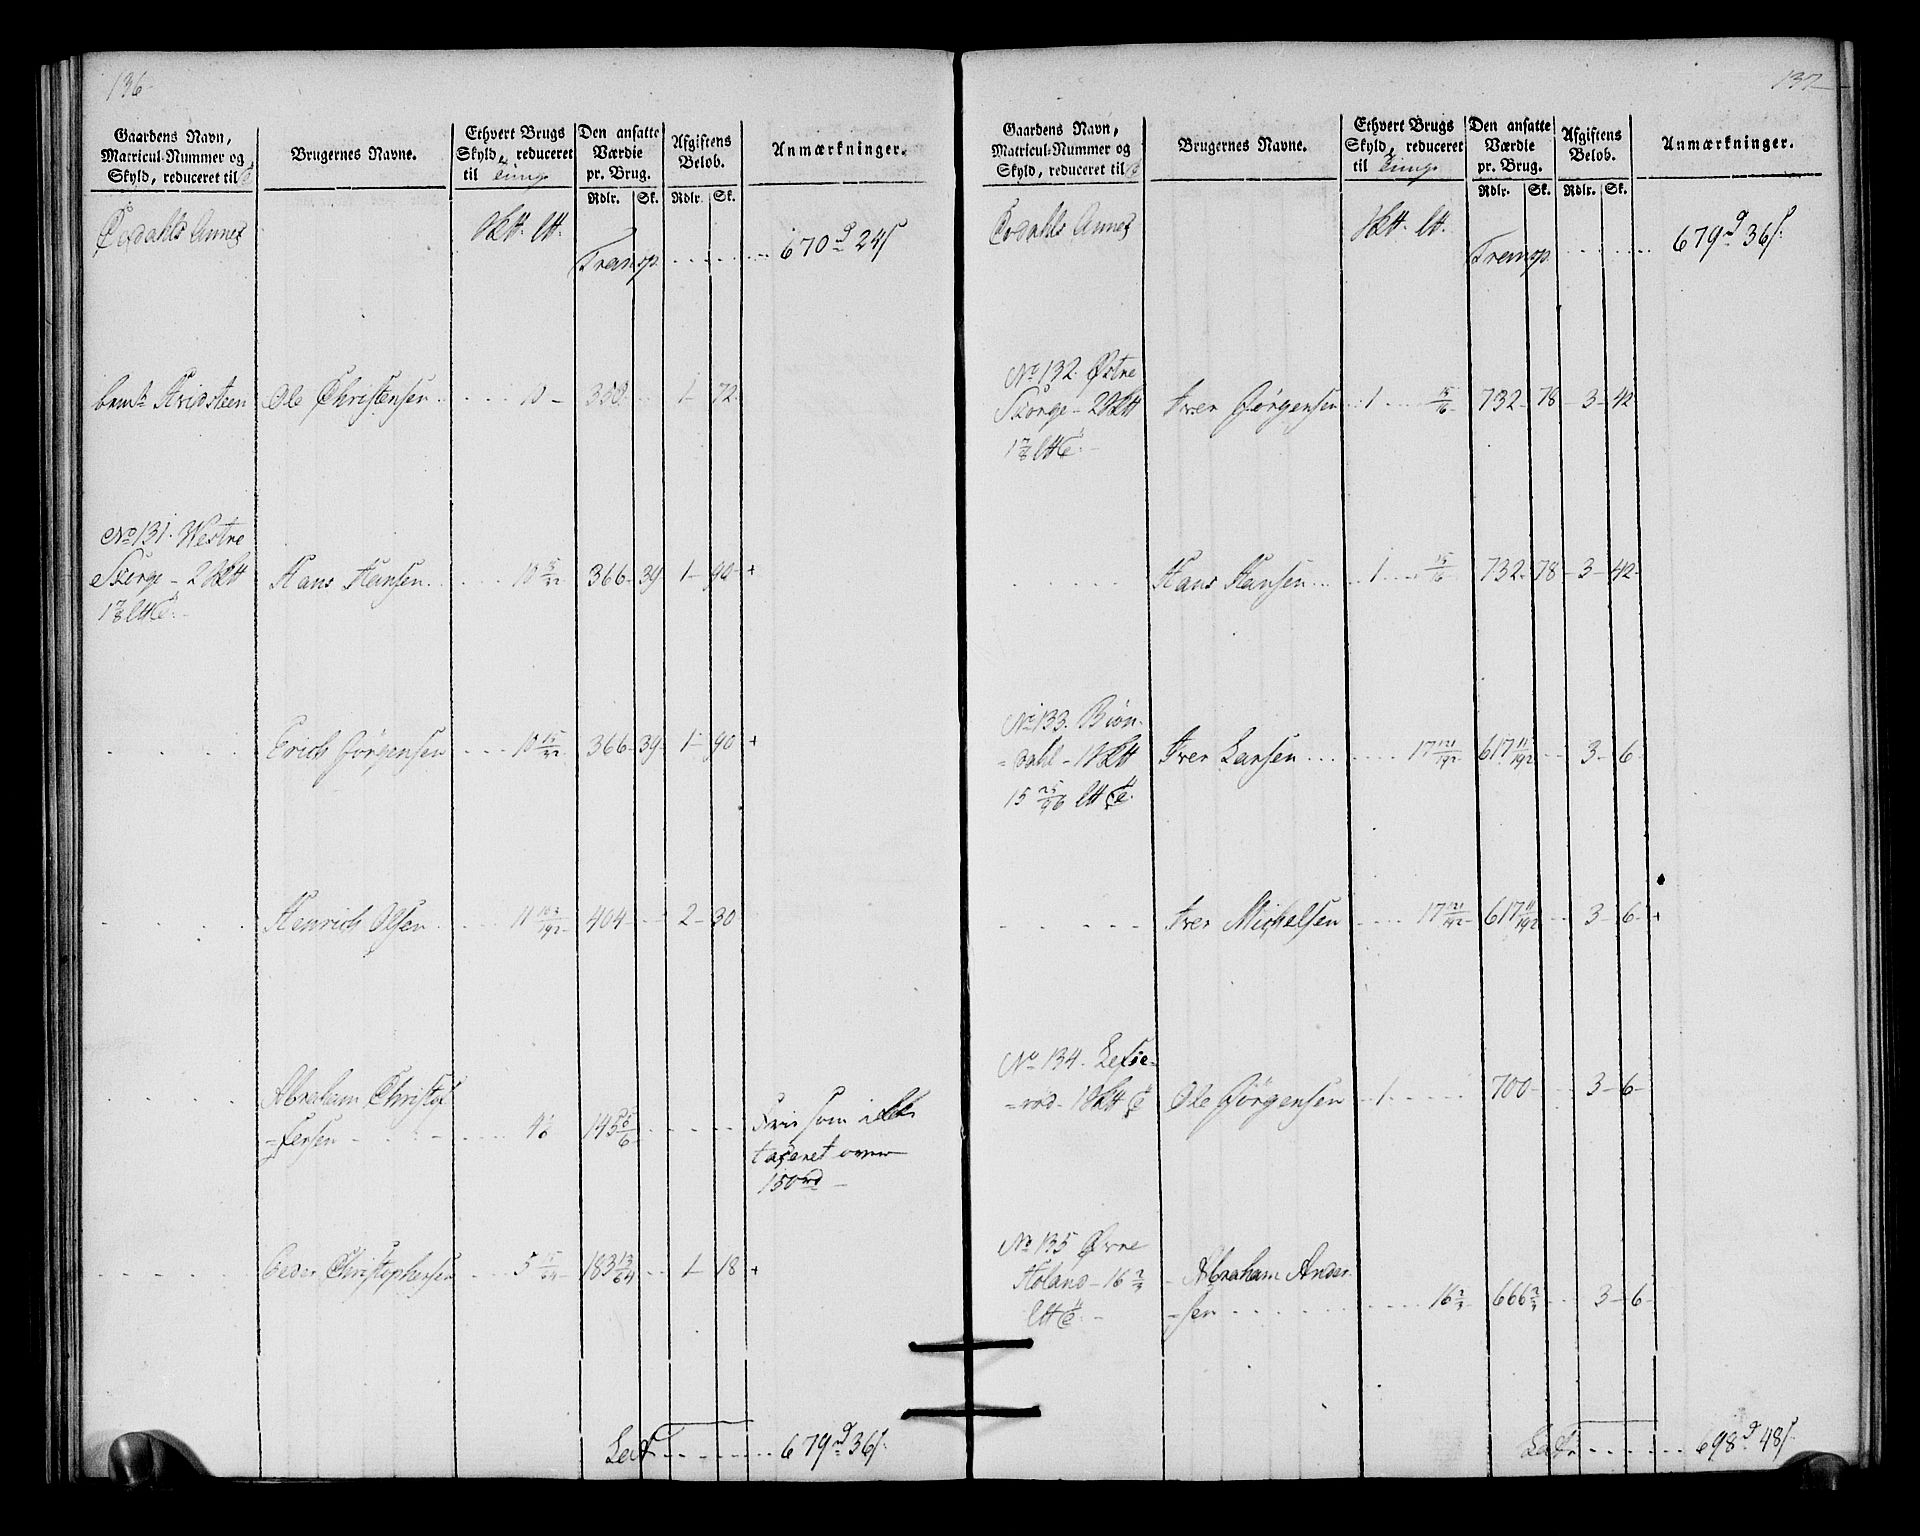 136
Gaardens Navn, Matricul-Nummer og Skyld, reduceret til
Brugernes Navne.
Ethvert Brugs Skyld, reduceret til Tunge
Den ansatte Værdie pr. Brug.
Afgiftens Belob.
Anmærkninger.
Rdlr. Sk. Rdlr. Sk.
Annex
Transp. 670 d 24 s
Ole Christensen 10 - 350 - 1 - 72
No 131. Westre
Skorge - 2 Hans Hansen 10 15/32 366 - 39 1 - 90 - +
1 7/8
Erich Jørgensen 10 15/32 366 - 39 - 1 - 90 - +
Henrich Olsen 11 103/192 404 - 2 - 30
Abraham Christof
=fersen 4 1/6 145 5/6
Fri som ikke
taxeret over
150 rd -
Peder Christophersen 5 15/64 183 13/64 1 - 18 - +
Lat. 679 d 36 s
137
Gaardens Navn, Matricul-Nummer og Skyld, reduceret til
Brugernes Navne.
Ethvert Brugs Skyld, reduceret til Tunge
Den ansatte Værdie pr. Brug.
Afgiftens Belob.
Anmærkninger.
Rdlr. Sk. Rdlr. Sk.
Annex
Transp. 679 d 36 s
No 132. Østre
Skorge - 2 Iver Jørgensen 1 15/16 732 - 78 - 3 - 42
1 7/8
Hans Hansen 1 15/16 732 - 78 - 3 - 42
No 133. Biøn-
=dahl - 1 Iver Larsen 17 121/192 617 11/192 3 - 6
15 25/96
Iver Michelsen 17 121/192 617 11/192 3 - 6 - +
No 134.
=rød - 1 Ole Jørgensen 1 700 - 3 - 6
No 135 Øvre
Høland - 16 2/3 Abraham Ander-
=sen 16 2/3 666 2/3 3 - 6
Lat. 698 d 48 s